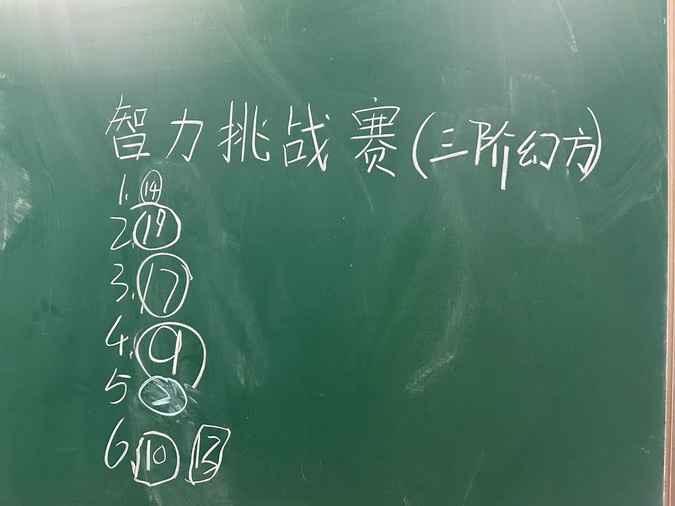 智力挑战赛(三阶幻方)
1. 14
2. 19
3. 17
4. 9
5 2
6. 10 13